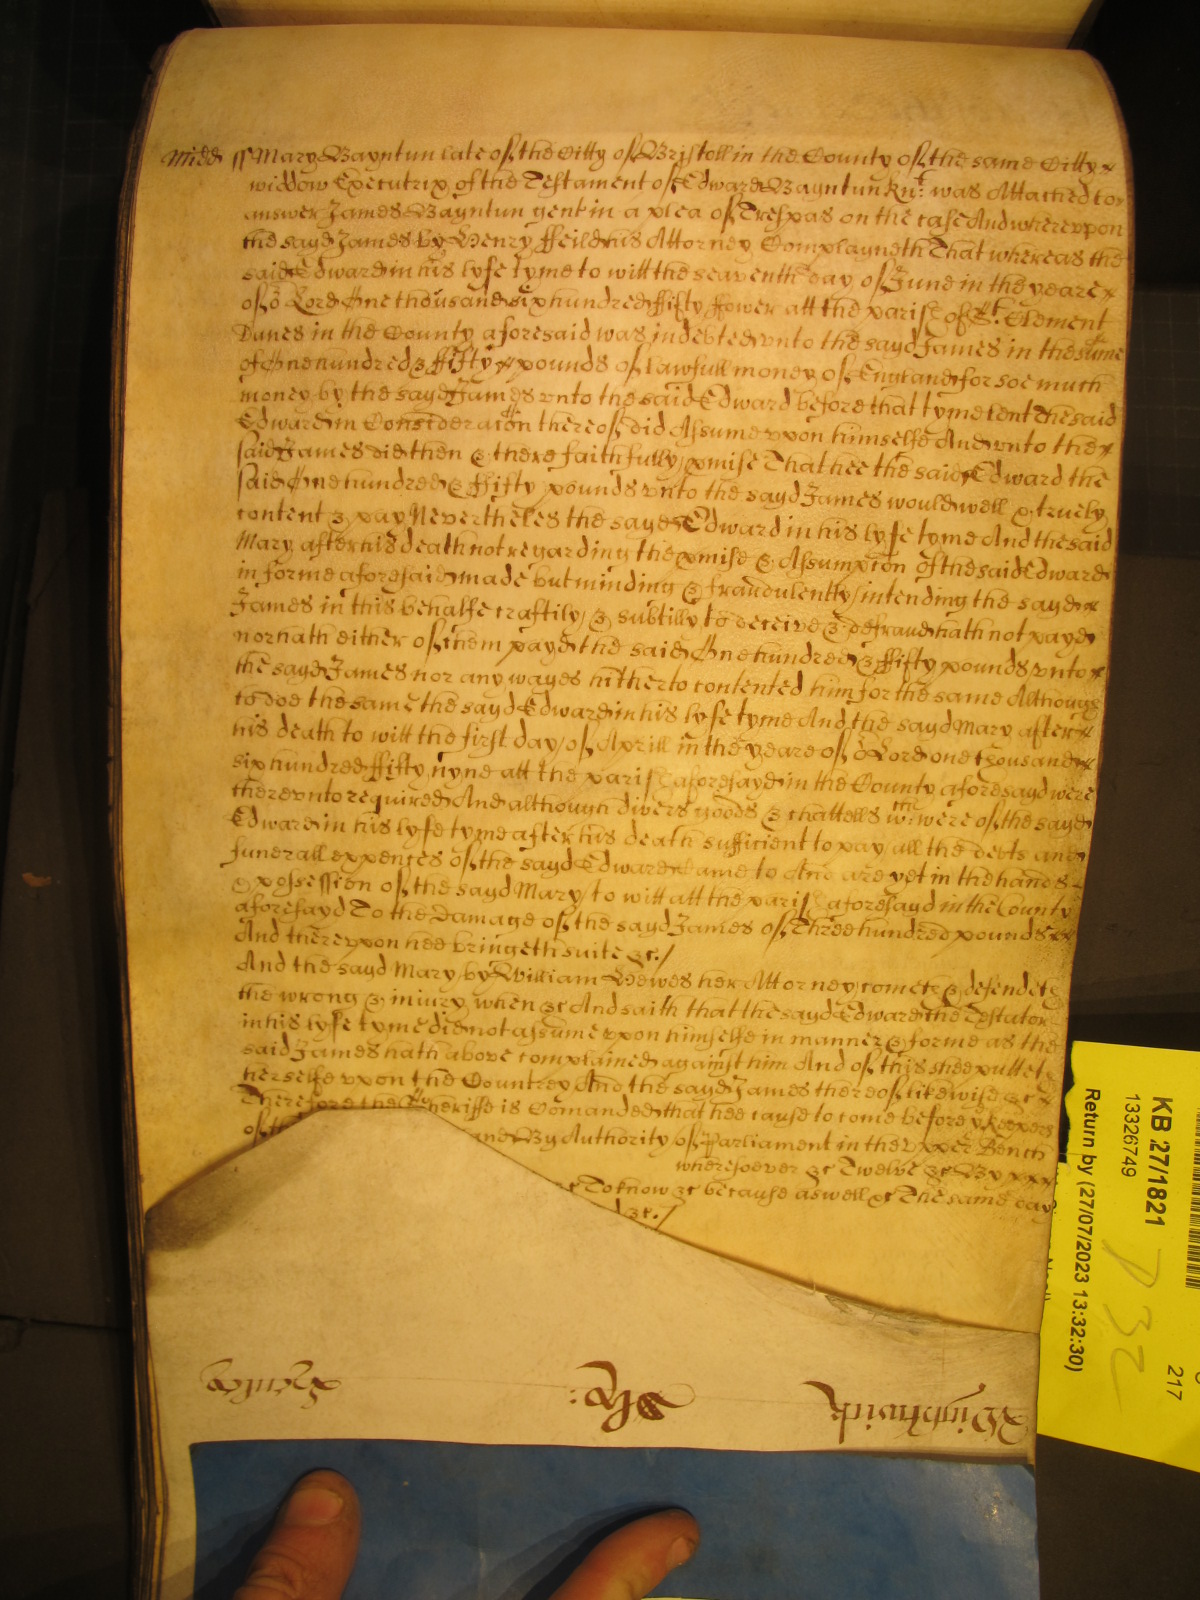 Midd ss Mary Bayntun late of the Citty of Bristoll in the County of the same Citty
widdow Executrix of the Testament of Edward Bayntun knt: was Attached to
answer James Bayntun gent in a plea of Trespas on the case And wherevpon
the sayd James by Henry ffeild his Attorney Complayneth That whereas the
said Edward in his lyfe tyme to witt the seaventh day of June in the yeare
of or Lord One thousand six hundred ffifty ffower att the parish of St. Clement
Danes in the County aforesaid was indebted vnto the sayd James in the sume
of One hundred & ffifty pounds of lawfull money of England for soe much
money by the sayd James vnto the said Edward before that tyme lent The said
Edward in Consideracion thereof did Assume vpon himselfe And vnto the
said James did then & there faithfully pmise That hee the said Edward the
said One hundred & ffifty pounds vnto the sayd James would well & truely
content & pay Nevertheles the sayd Edward in his lyfe tyme And the said
Mary after his death not regarding the pmise & Assumpcon of the said Edward
in forme aforesaid made but minding & fraudulently intending the sayd
James in this behalfe craftily & subtilly to deceive & defraud hath not payd
nor hath either of them payd the said One hundred & ffifty pounds vnto
the sayd James nor any wayes hitherto contented him for the same Although
to doe the same the sayd Edward in his lyfe tyme And the sayd Mary after
his death to witt the first day of Aprill in the yeare of or Lord one thousand
six hundred ffifty nyne att the parish aforesayd in the County aforesayd were
therevnto required And although divers goods & chattells wch: were of the sayd
Edward in his lyfe tyme after his death sufficient to pay all the debts and
funerall expences of the sayd Edward came to And are yet in the hands
& possession of the sayd Mary to witt att the parish aforesayd in the County
aforesayd To the Damage of the sayd James of Three hundred pounds
And therevpon hee bringeth suite &c./
And the sayd Mary by William Hewes her Attorney comets & defendets
the wrong & iniury when &c And saith that the sayd Edward the Testator
in his lyfe tyme did not assume vpon himselfe in manner & forme as the
said James hath above complained against him And of this shee puttets
herselfe vpon the Countrey And the sayd James thereof likewise &c
Therefore the Sheriffe is Comanded that hee cause to come before ye keepers
of th and By Authority of Parliament in the vpper Bench
wheresoever &c Twelve &c By
&c To know &c because aswell &c The same day
d &c./
Wightwick
KB 27/1821
13326749
Return by (27/07/2023 13:32:30)
217